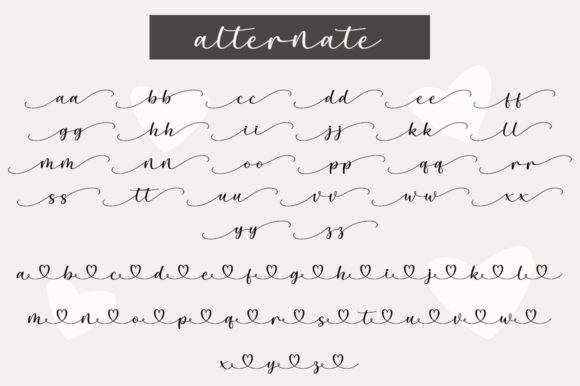 alternate
aa bb cc dd ee ff
gg hh ii jj kk ll
mm nn oo pp qq rr
ss tt uu vv ww xx
yy zz
a♡b♡c♡d♡e♡f♡g♡h♡i♡j♡k♡l♡
m♡n♡o♡p♡q♡r♡s♡t♡u♡v♡w♡
x♡y♡z♡